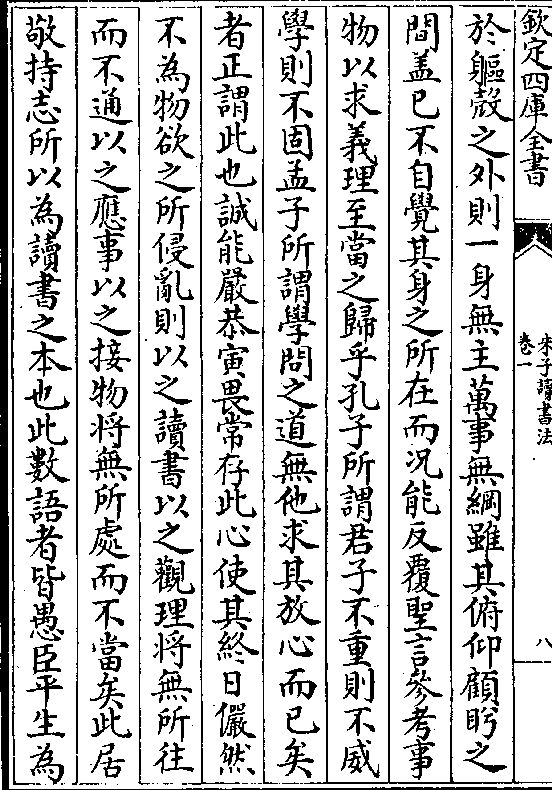 欽定四庫全書
朱子讀書法
卷一
八
於軀殻之外則一身無主萬事無綱雖其俯仰顧眄之
間盖已不自覺其身之所在而况能反覆聖言參考事
物以求義理至當之歸乎孔子所謂君子不重則不威
學則不固孟子所謂學問之道無他求其放心而已矣
者正謂此也誠能嚴恭寅畏常存此心使其終日儼然
不為物欲之所侵亂則以之讀書以之觀理將無所往
而不通以之應事以之接物將無所處而不當矣此居
敬持志所以為讀書之本也此數語者皆愚臣平生為